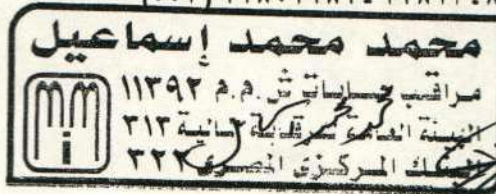 محمد محمد إسماعيل
مراقب حسابات ش.م.م ١١٣٩٢
الهيئة العامة للرقابة المالية ٣١٣
البنك المركزى المصرى ٣٢٢
mm i